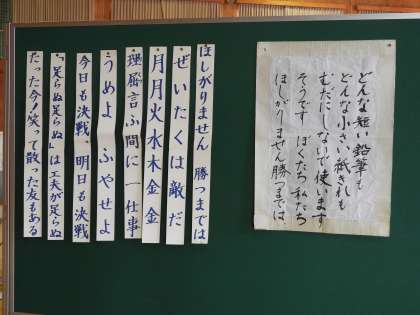 ほしがりません 勝つまでは
ぜいたくは敵だ
月月火水木金金
理屈言ふ間に一仕事
うめよ ふやせよ
今日も決戦 明日も決戦
「足らぬ足らぬ」は工夫が足らぬ
たった今！笑って散った友もある
どんな短い鉛筆も
どんな小さい紙きれも
むだにしないで使います
そうです ぼくたち私たち
ほしがりません勝つまでは